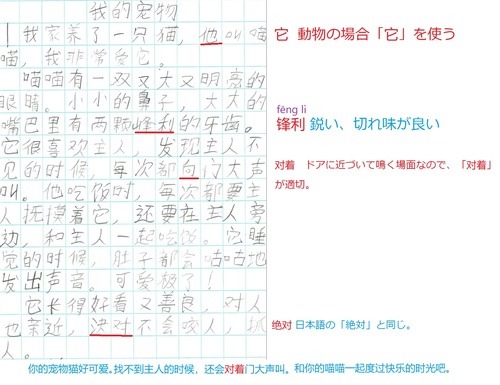 我的宠物
我家养了一只猫，他叫喵
喵，我非常爱它。
喵喵有一双又大又明亮的
眼睛。小小的鼻子，大大的
嘴巴里有两颗峰利的牙齿。
它很喜欢主人，发现主人不
见的时候，每次都向门大声
叫。他吃饭时，每次都要主
人抚摸着它，还要在主人旁
边，和主人一起吃饭。它睡
觉的时候，肚子都会咕咕地
发出声音。可爱极了！
它长得好看又善良，对人
也亲近，决对不会咬人，抓
人。
它 動物の場合「它」を使う
fēng lì
锋利 鋭い、切れ味が良い
对着 ドアに近づいて鳴く場面なので、「对着」
が適切。
绝对 日本語の「絶対」と同じ。
你的宠物猫好可爱。找不到主人的时候，还会对着门大声叫。和你的喵喵一起度过快乐的时光吧。